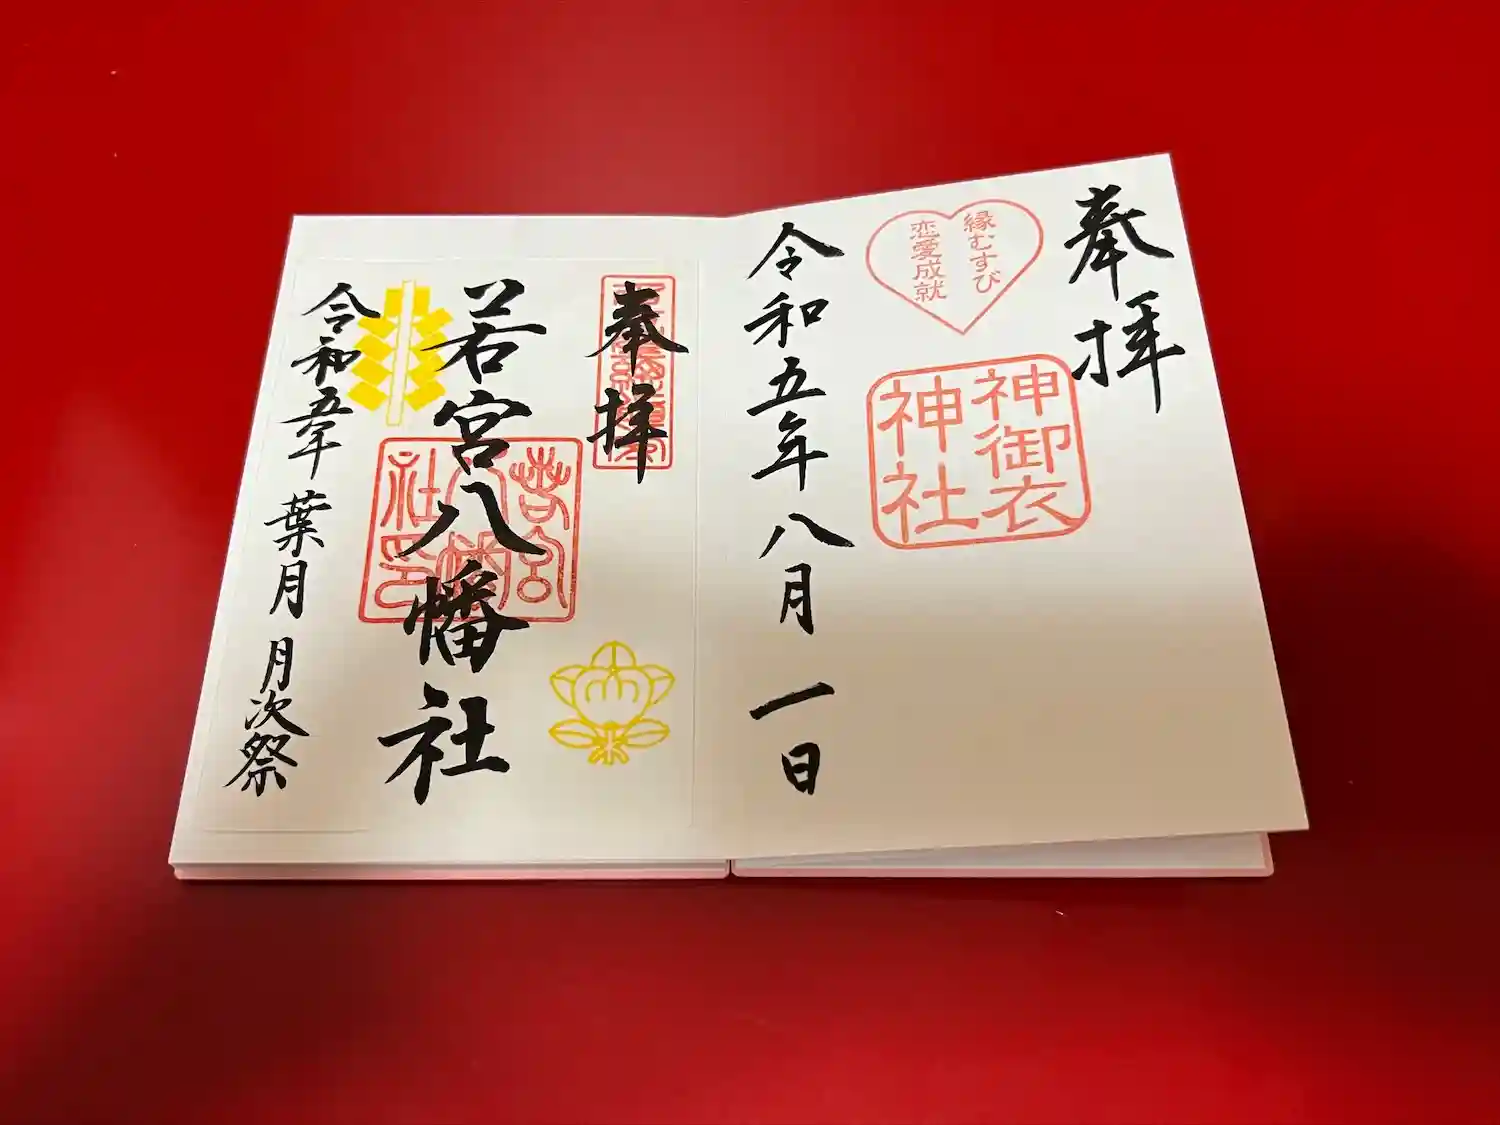 奉拝
縁むすび
恋愛成就
神御衣
神社
令和五年八月一日
奉拝
若宮八幡社
若宮
八幡
社印
令和五年 葉月 月次祭